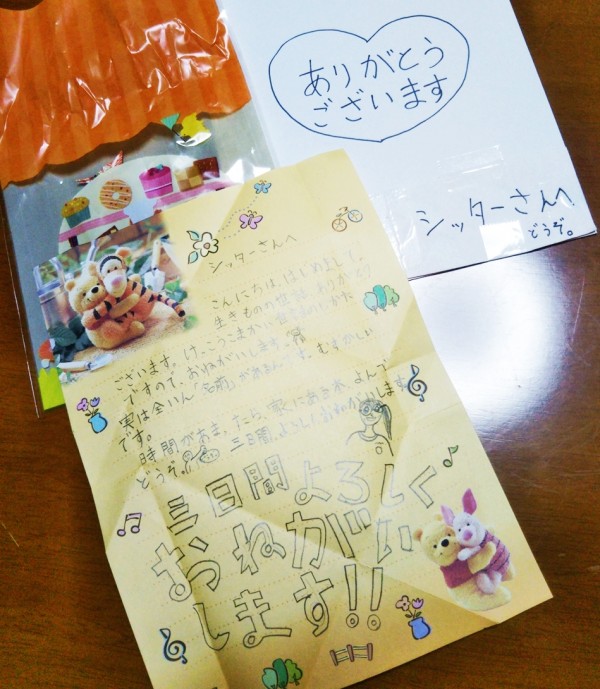 ありがとう
ございます
シッターさんへ
どうぞ。
シッターさんへ
こんにちは、はじめまして。
生きものの世話、ありがとう
ございます。けっこうこまかい
ですので、おねがいします。
実は全いん「名前」があるんです。むずかしい
です。
時間があまったら、家にある本、よんで
どうぞ。三日間、よろしくおねがいします
三日間よろしく
おねがい
します!!